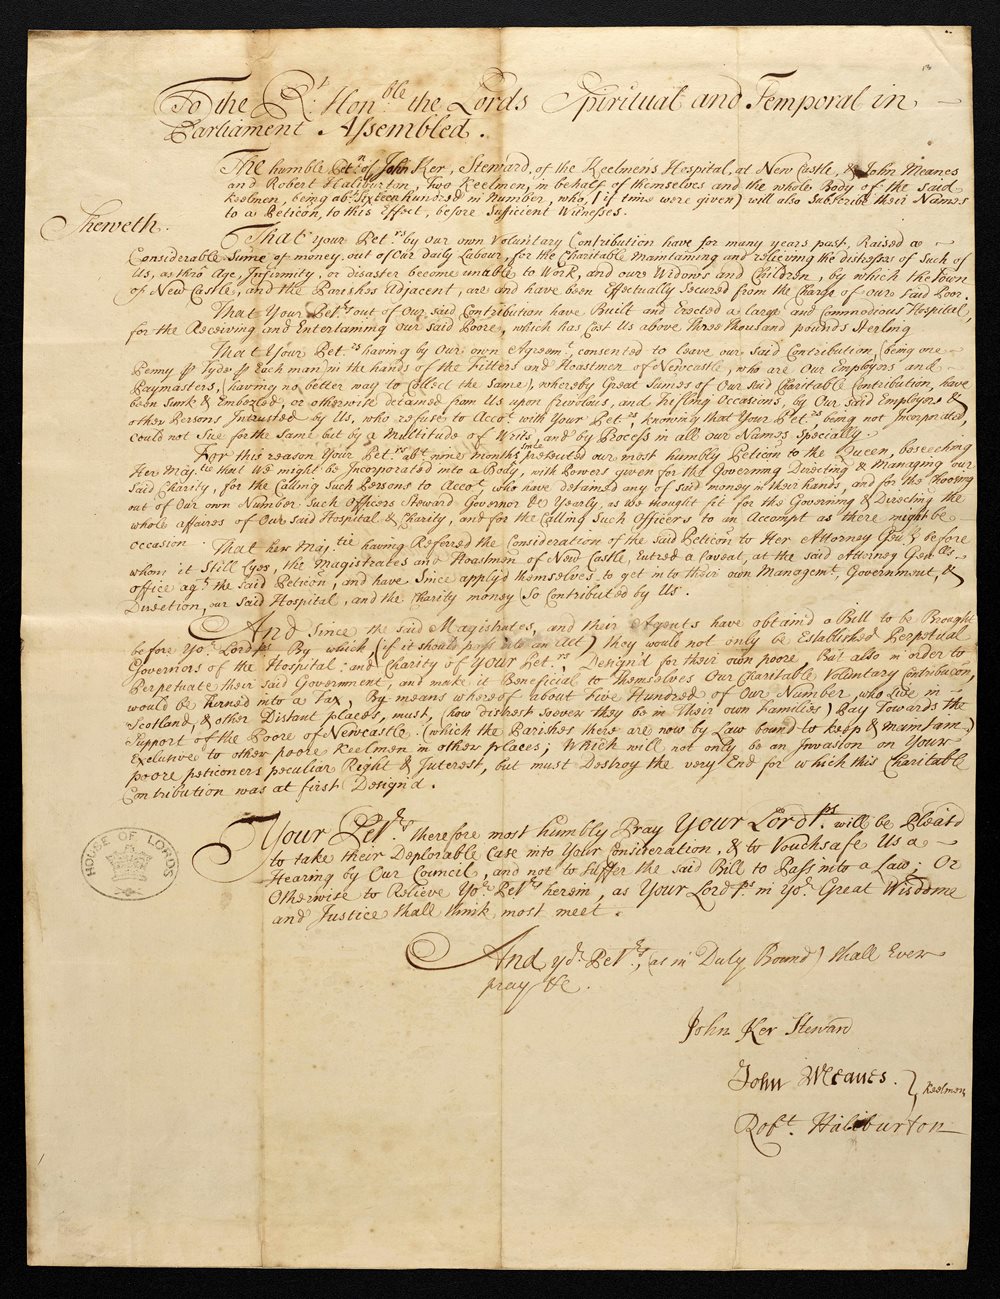 To the Rt. Honble the Lords Spiritual and Temporal in
Parliament Assembled.
The humble Petn. of John Ker, Steward, of the Keelmens Hospital, at New Castle, & John Meanes
and Robert Haliburton, Two Keelmen, in behalf of themselves and the whole Body of the said
Keelmen, being abt. Sixteen hundred in number, who, (if time were given) will also Subscribe their Names
to a Peticon, to this Effect, before Suficient Witnesses.
Sheweth.
That your Petrs. by our own Voluntary Contribution have for many years past, Raised a
Considerable Sume of money, out of Our daily Labour, for the Charitable Maintaining and relieving the distresses of Such of
Us, as thro' Age, Infirmity, or disaster become unable to Work, and our Widows and Children, by which the Town
of New Castle, and the Parishes Adjacent, are and have been Effectually Secured from the Charge of our said Poor.
That Your Petrs. out of Our said Contribution have Built and Erected a large and Commodious Hospital,
for the Receiving and Entertaining our said Poore, which has Cost Us above Three thousand pounds Sterling
That Your Petrs. having by Our own Agreemt. consented to leave our Said Contribution, (being one
Penny p Tyde p Each man) in the hands of the Fitters and Hoastmen of Newcastle, who are Our Employers and
Paymasters, (having no better way to Collect the Same), whereby Great Sumes of Our said Charitable Contribution, have
been Sunk & Embezled, or otherwise detained from Us upon frivolous, and trifling Occasions, by Our said Employers &
other Persons Intrusted by Us, who refuse to Accot. with Your Petrs., knowing that Your Petrs., being not Incorporated,
could not Sue for the Same but by a Multitude of Writs, and by Process in all our Names Specially
For this reason Your Petrs. abt. nine months since presented our most humbly Peticon to the Queen, beseeching
Her Majtie that We might be Incorporated into a Body, with Powers given for the Governing Directing & Managing our
Said Charity, for the Calling Such Persons to Accot., who have detained any of said money in their hands, and for the Choosing
out of Our own Number Such Officers Steward Governor &c Yearly, as we thought fit for the Governing & Directing the
whole affaires of Our said Hospital & Charity, and for the Calling Such Officers to an Accompt as there might be
occasion.
That her Majtie having Refered the Consideration of the said Peticon to Her Attorney Genll, before
whom it Still Lyes, the Magistrates and Hoastmen of New Castle, Entred a Caveat, at the said Attorney Genlls
office agt. the said Peticon, and have Since apply'd themselves to get into their own Managemt., Government, &
Direction, our Said Hospital, and the Charity money So Contributed by Us.
And Since the said Magistrates, and their Agents have obtain'd a Bill to be Brought
before Yor. Lordps. By which (if it should pass into an Act) they would not only be Established Perpetual
Governors of the Hospital: and Charity of Your Petrs., Design'd for their own poore, But also in order to
Perpetuate their said Government, and make it Beneficial to themselves Our Charitable Voluntary Contribucon,
would be turned into a Tax, By means whereof about Five Hundred of Our Number, who Live in
Scotland, & other Distant places, must, (how distrest soever they be in Their own Families) Pay Towards the
Support of the Poore of Newcastle. (which the Parishes there are now by Law bound to keep & maintain)
Exclusive to other poore Keelmen in other places; Which will not only be an Invasion on Your
poore peticoners peculiar Right & Interest, but must Destroy the very End for which this Charitable
Contribution was at first Design'd.
Your Petrs. therefore most humbly Pray Your Lordps. will be Pleas'd
to take their Deplorable Case into Your Consideration, & to Vouchsafe Us a
Hearing by Our Council, and not to Suffer the said Bill to Pass into a Law; Or
Otherwise to Relieve Yor. Petrs. herein, as Your Lordps. in Yor. Great Wisdome
and Justice shall think most meet.
And yor. Petrs., (as in Duty Bound) shall Ever
pray &c.
John Ker Steward
John Meanes.
Keelmen
Robt. Haliburton
HOUSE OF LORDS